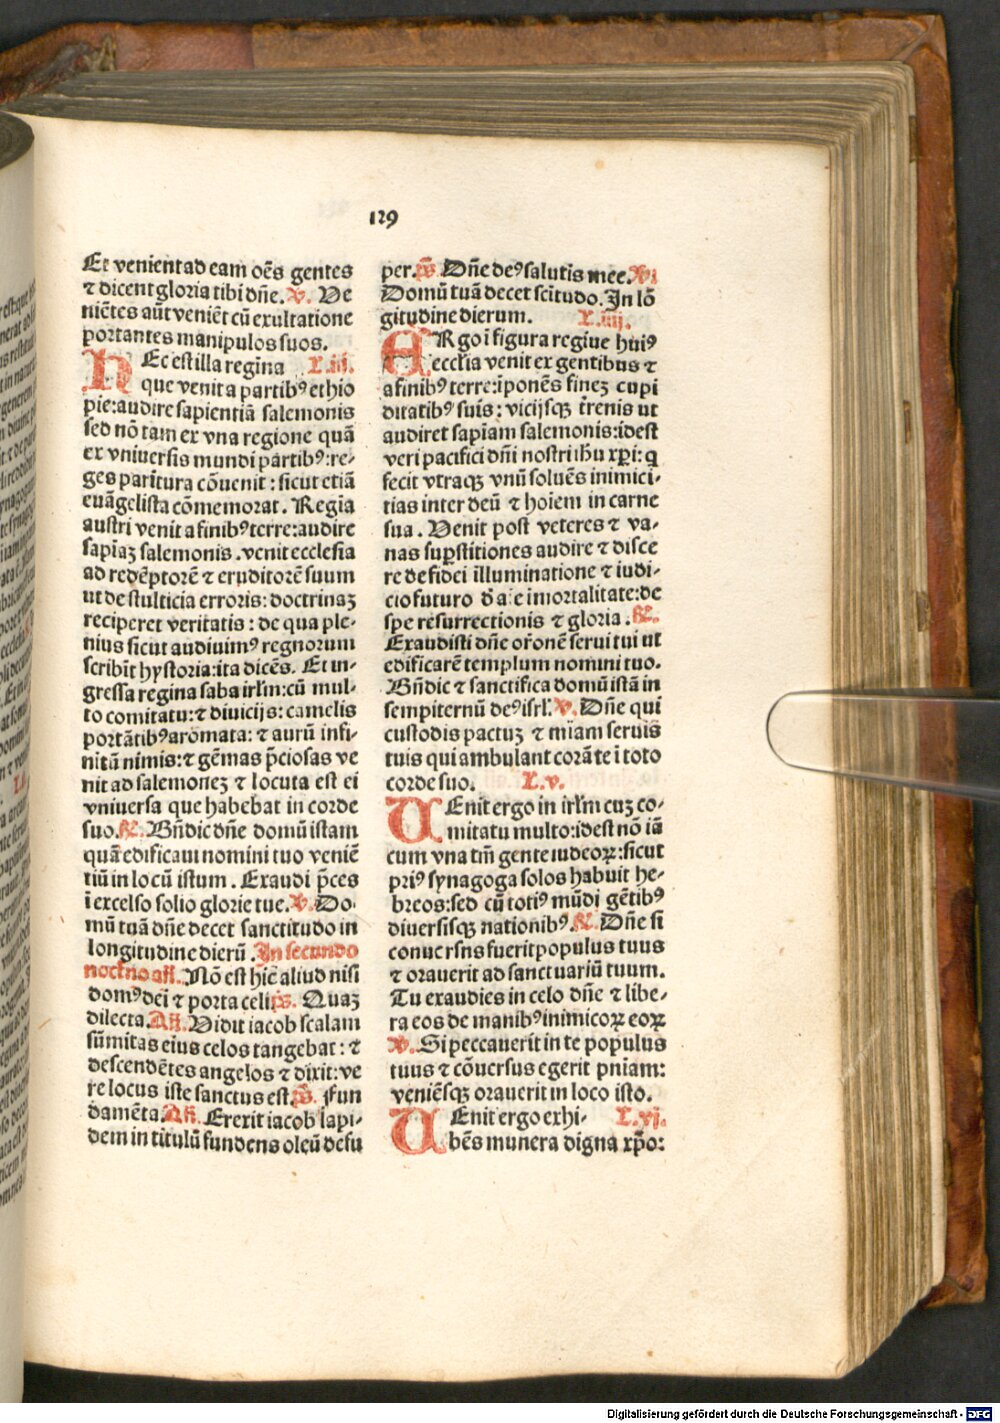 129
Et venient ad eam oēs gentes
⁊ dicent gloria tibi dñe. V. Ve
niētes aūt veniēt cū exultatione
portantes manipulos suos.
HEc est illa regina L.iii.
que venit a partibꝰ ethio
pie:audire sapientiā salemonis
sed nō tam ex vna regione quā
ex vniuersis mundi partibꝰ:re⸗
ges paritura cōuenit : sicut etiā
euāgelista cōmemorat. Regia
austri venit a finibꝰ terre:audire
sapiaꝫ salemonis . venit ecclesia
ad redēptorē ⁊ eruditorē suum
ut de stulticia erroris: doctrinaꝫ
reciperet veritatis : de qua ple⸗
nius sicut audiuimꝰ regnorum
scribit̄ hystoria:ita dicēs. Et in⸗
gressa regina saba irl̄m:cū mul⸗
to comitatu:⁊ diuicijs: camelis
portātibꝰ aromata: ⁊ aurū infi⸗
nitū nimis:⁊ gēmas p̄ciosas ve
nit ad salemoneꝫ ⁊ locuta est ei
vniuersa que habebat in corde
suo. R. Bñdic dñe domū istam
quā edificaui nomini tuo veniē
tiū in locū istum . Exaudi p̄ces
ī excelso solio glorie tue. V. Do⸗
mū tuā dñe decet sanctitudo in
longitudine dierū . In secundo
noctno añ. Nō est hic aliud nisi
domꝰ dei ⁊ porta celi: p̄s. Quaꝫ
dilecta. Añ. Vidit iacob scalam
sūmitas eius celos tangebat : ⁊
descendētes angelos ⁊ dixit:ve
re locus iste sanctus est. p̄s. Fun
damēta. Añ. Erexit iacob lapi⸗
dem in titulū fundens oleū desu
per. p̄s. Dñe deꝰ salutis mee. V.
Domū tuā decet scītudo. In lō
gitudine dierum. L.iiij.
ERgo ī figura regine huiꝰ
eccl̄ia venit ex gentibus ⁊
a finibꝰ terre:īponēs fineꝫ cupi
ditatibꝰ suis : vicijsqꝫ t̄renis ut
audiret sapiam salemonis:idest
veri pacifici dñi nostri ihū xp̄i: q
fecit vtraqꝫ vnū soluēs inimici⸗
tias inter deū ⁊ hoiem in carne
sua . Venit post veteres ⁊ va⸗
nas sup̄stitiones audire ⁊ disce
re de fidei illuminatione ⁊ iudi⸗
cio futuro imortalitate:de
spe resurrectionis ⁊ gloria . R.
Exaudisti dñe or̄onē serui tui ut
edificarē templum nomini tuo.
Bñdic ⁊ sanctifica domū istā in
sempiternū deꝰ isrl̄. V. Dñe qui
custodis pactuꝫ ⁊ m̄iam seruis
tuis qui ambulant corā te ī toto
corde suo. L.v.
UEnit ergo in irl̄m cuꝫ co⸗
mitatu multo:idest nō iā
cum vna tm̄ gente iudeoꝝ:sicut
priꝰ synagoga solos habuit he⸗
breos:sed cū totiꝰ mūdi gētibꝰ
diuersisqꝫ nationibꝰ. R. Dñe si
conuersns fuerit populus tuus
⁊ orauerit ad sanctuariū tuum.
Tu exaudies in celo dñe ⁊ libe⸗
ra eos de manibꝰ inimicoꝝ eoꝝ
V. Si peccauerit in te populus
tuus ⁊ cōuersus egerit pniam:
veniēsqꝫ orauerit in loco isto.
UEnit ergo exhi⸗ L.vj.
bēs munera digna xp̄o:
Digitalisierung gefördert durch die Deutsche Forschungsgemeinschaft - DFG